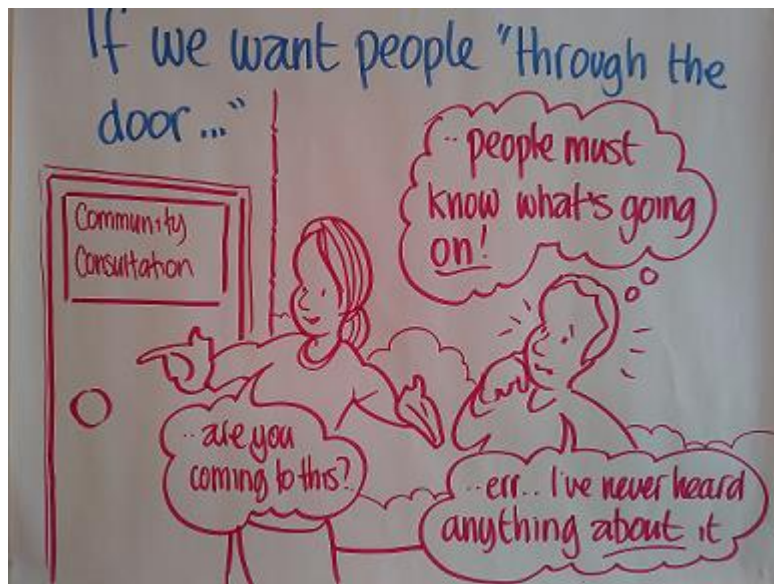 If we want people "through the
door..."
Community
Consultation
.. people must
know what's going
on!
.. are you
coming to this?
..err.. I've never heard
anything about it